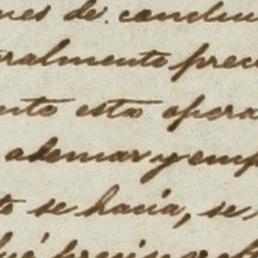 nes de conclui
ralmente prec
nto esta opera
ademar y emp
to se hacía, se